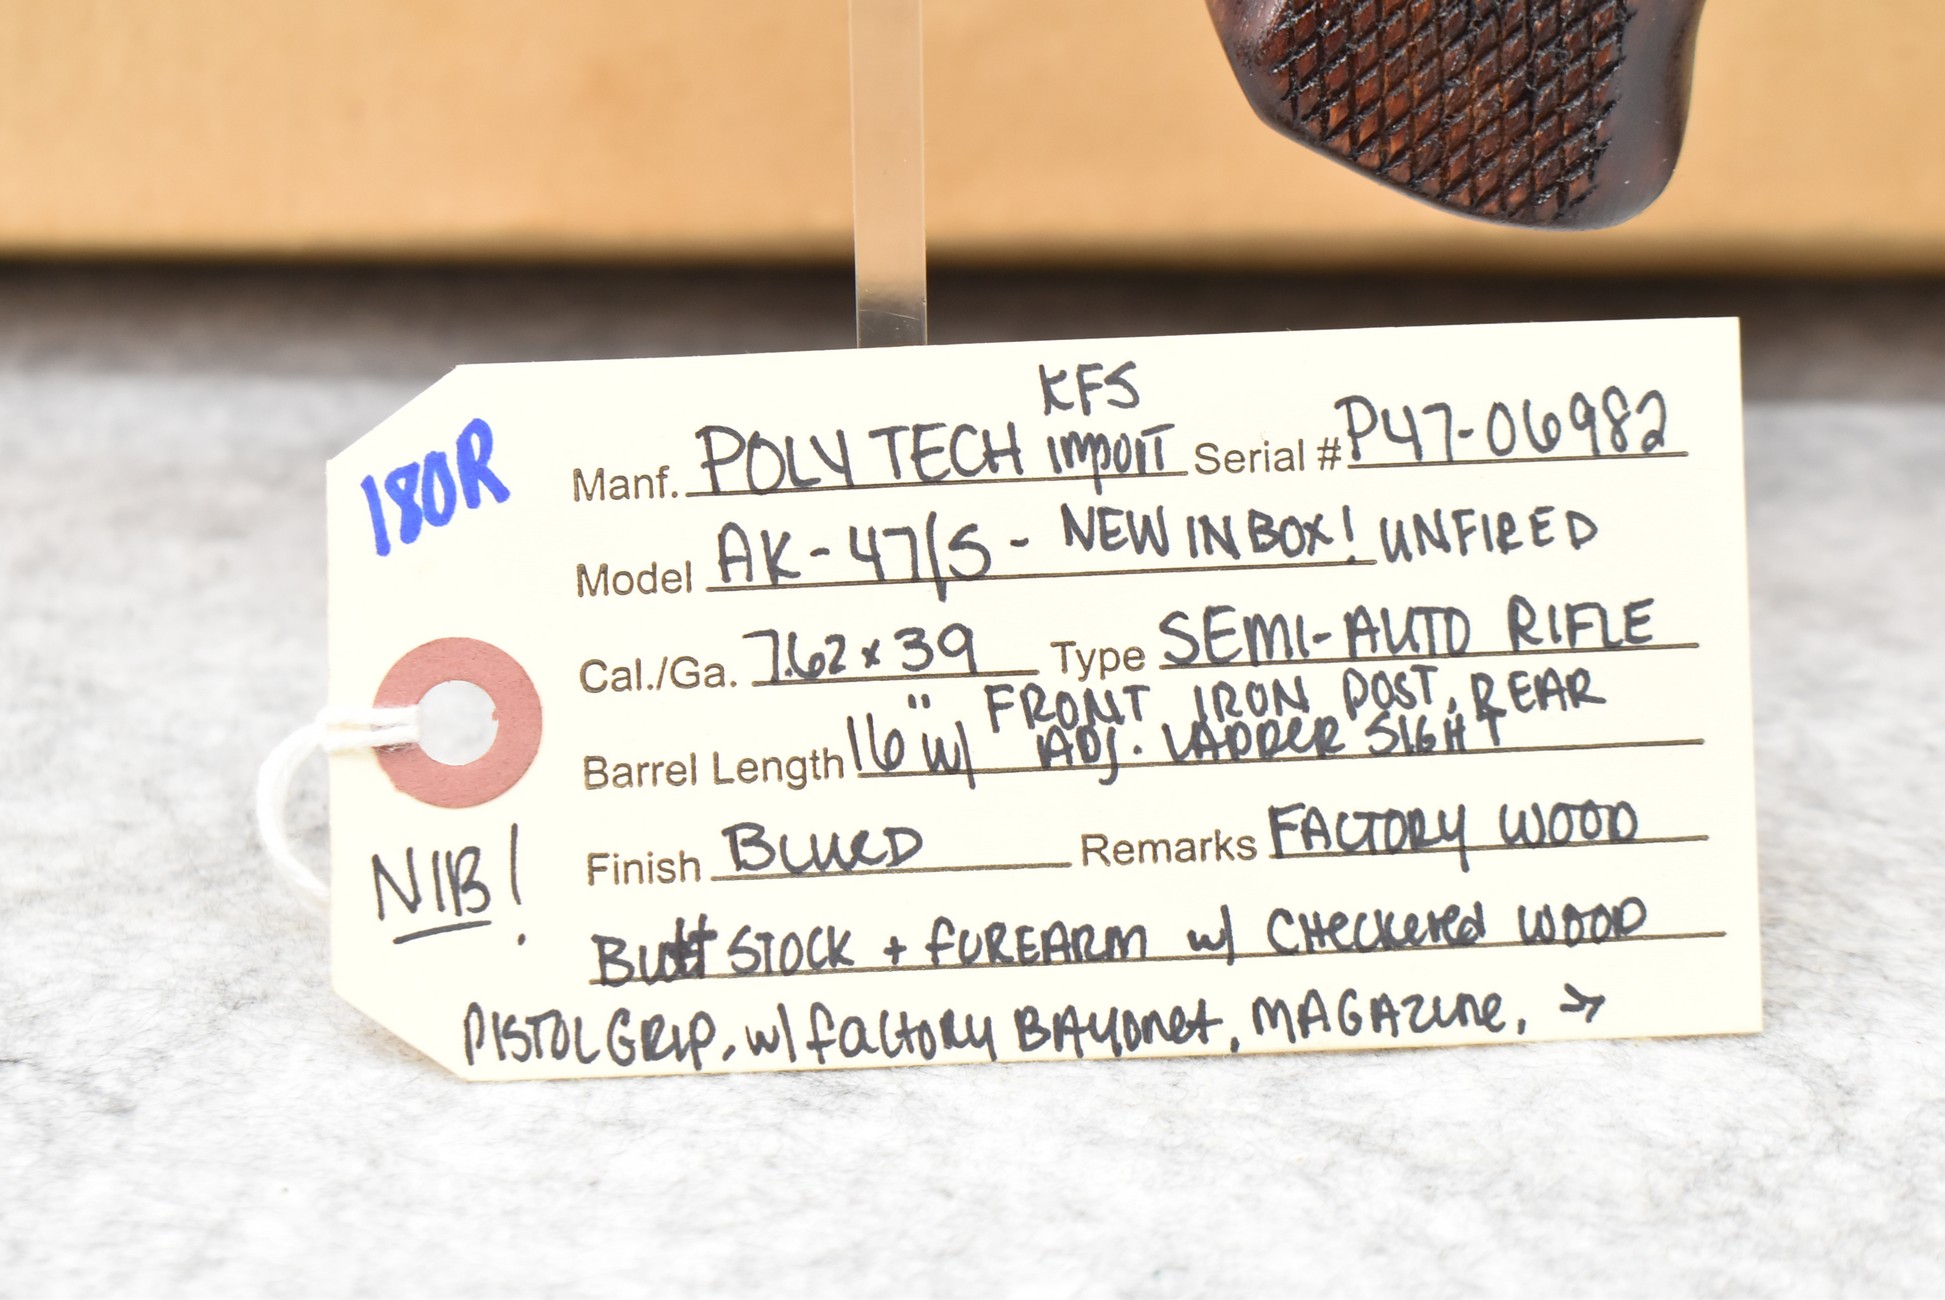 180R
KFS
Manf. POLY TECH IMPORT Serial # P47-06982
Model AK-47/S - NEW IN BOX! UNFIRED
Cal./Ga. 7.62x39 Type SEMI-AUTO RIFLE
Barrel Length 16" w/ FRONT IRON POST, REAR
ADJ. LADDER SIGHT
Finish BLUED Remarks FACTORY WOOD
NIB!
Butt STOCK + FOREARM w/ CHeckered WOOD
PISTOL GRIP, w/ factory BAYONet, MAGAZINE, →